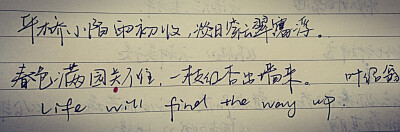 斗桥小陌雨初收，淡日穿云翠霭浮。
春色满园关不住，一枝红杏出墙来。 叶绍翁
Life will find the way up.